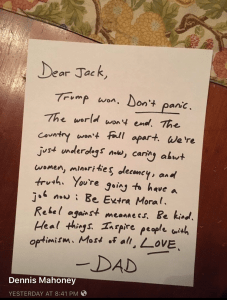 Dear Jack,
Trump won. Don't panic.
The world won't end. The
country won't fall apart. We're
just underdogs now, caring about
women, minorities, decency, and
truth. You're going to have a
job now: Be Extra Moral.
Rebel against meanness. Be kind.
Heal things. Inspire people with
optimism. Most of all, LOVE.
- DAD
Dennis Mahoney
YESTERDAY AT 8:41 PM